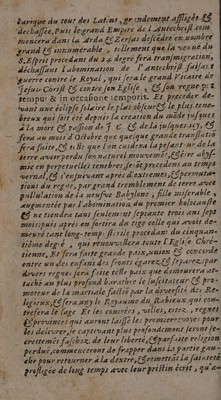 barique du tout des Latins, grandement affligée &
dechassée, puis le grand Empire de l'Antechrist com-
mencera dans la Arda & Zersas descēdre en nombre
grand & innumerable, tellement que la venue du
S. Esprit procedant du 24. degré fera transmigration,
dechassant l'abomination de l'Antechrist faisant
guerre contre le Royal, qui sera le grand Vicaire de
Iesus Christ & contre son Eglise, & son regne per
tempus & in occasione temporis. Et precedera de-
vant une eclipse solaire le plus obscur & le plus tene-
breux qui soit esté depuis la creation du monde jusques
à la mort & passion de I. C. & de là jusques icy, &
sera au mois d'Octobre que quelque grande translation
sera faite, & telle que l'on cuidera la pesanteur de la
terre avoir perdu son naturel mouvement, & être abys-
mée en perpetuelles tenebres, seront precedans au temps
vernal, & s'ensuivant après d'extremes changemens, & permuta-
tions du regne, par grand tremblement de terre avec
pullulation de la neufve Babylone, fille miserable,
augmentée par l'abomination du premier holocauste
& ne tiendra tant seulement septante trois ans sept
mois puis après en sortira du tige celle qui avoit de-
meuré tant long-temps sterile procedant du cinquan-
tième degré, qui renouvellera toute l'Eglise Chrê-
tienne, Et sera faite grande paix, union & concorde
entre un des enfans des fronts égarez, & separez, par
divers regnes sera faite telle paix que demourera at-
taché au plus profond baratre le suscitateur & pro-
moteur de la martiale faction par la diversité des Re-
ligieux, & sera uny le Royaume du Rabieux, qui con-
trefera le sage Et les contrées, villes, citez, regnes
& provinces qui auront laissé les premieres voyes pour
les delivrer, se captivant plus profondement seront se-
crettement faschez de leur liberté, & parfaite religion
perdue, commenceront de frapper dans la partie gau-
che pour retourner à la dextre, & remettāt la sainteté
profligée de long temps avec leur pristin écrit, qu'a-